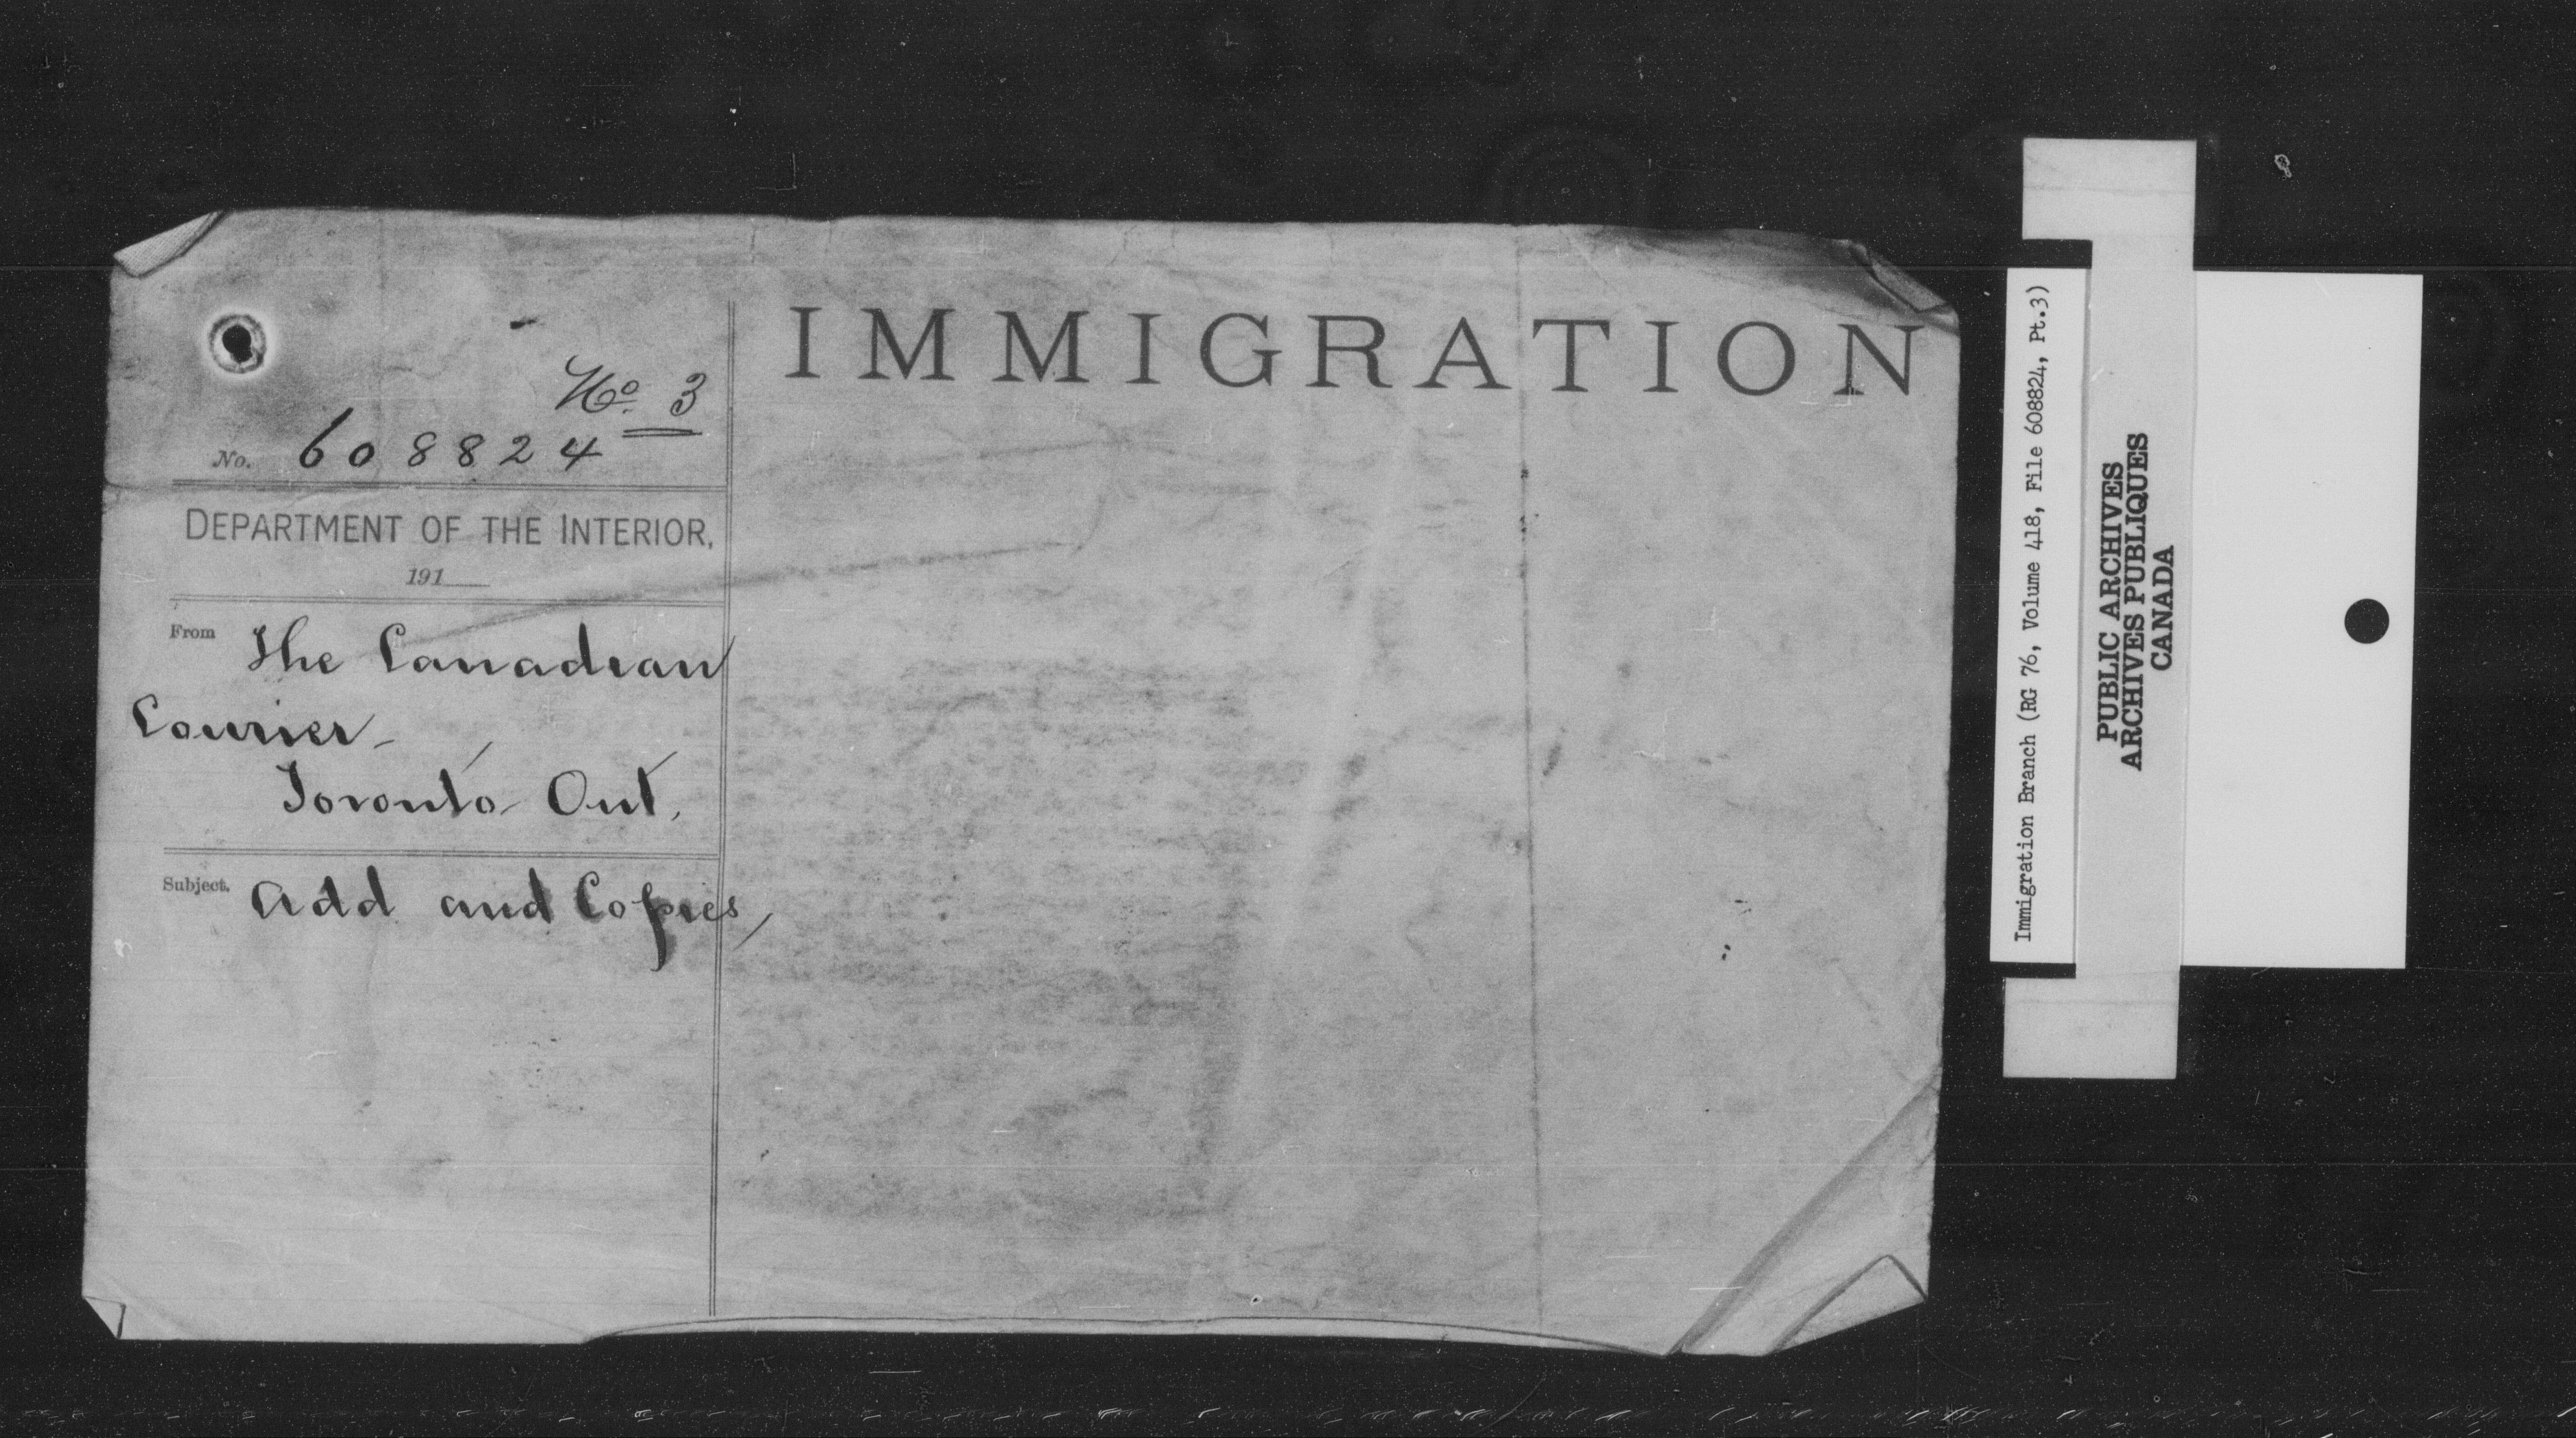 IMMIGRATION
No. 3
No. 608824
DEPARTMENT OF THE INTERIOR,
191
From The Canadian
Courier
Toronto Ont.
Subject. Add and Copies,
Immigration Branch (RG 76, Volume 418, File 608824, Pt.3)
PUBLIC ARCHIVES
ARCHIVES PUBLIQUES
CANADA